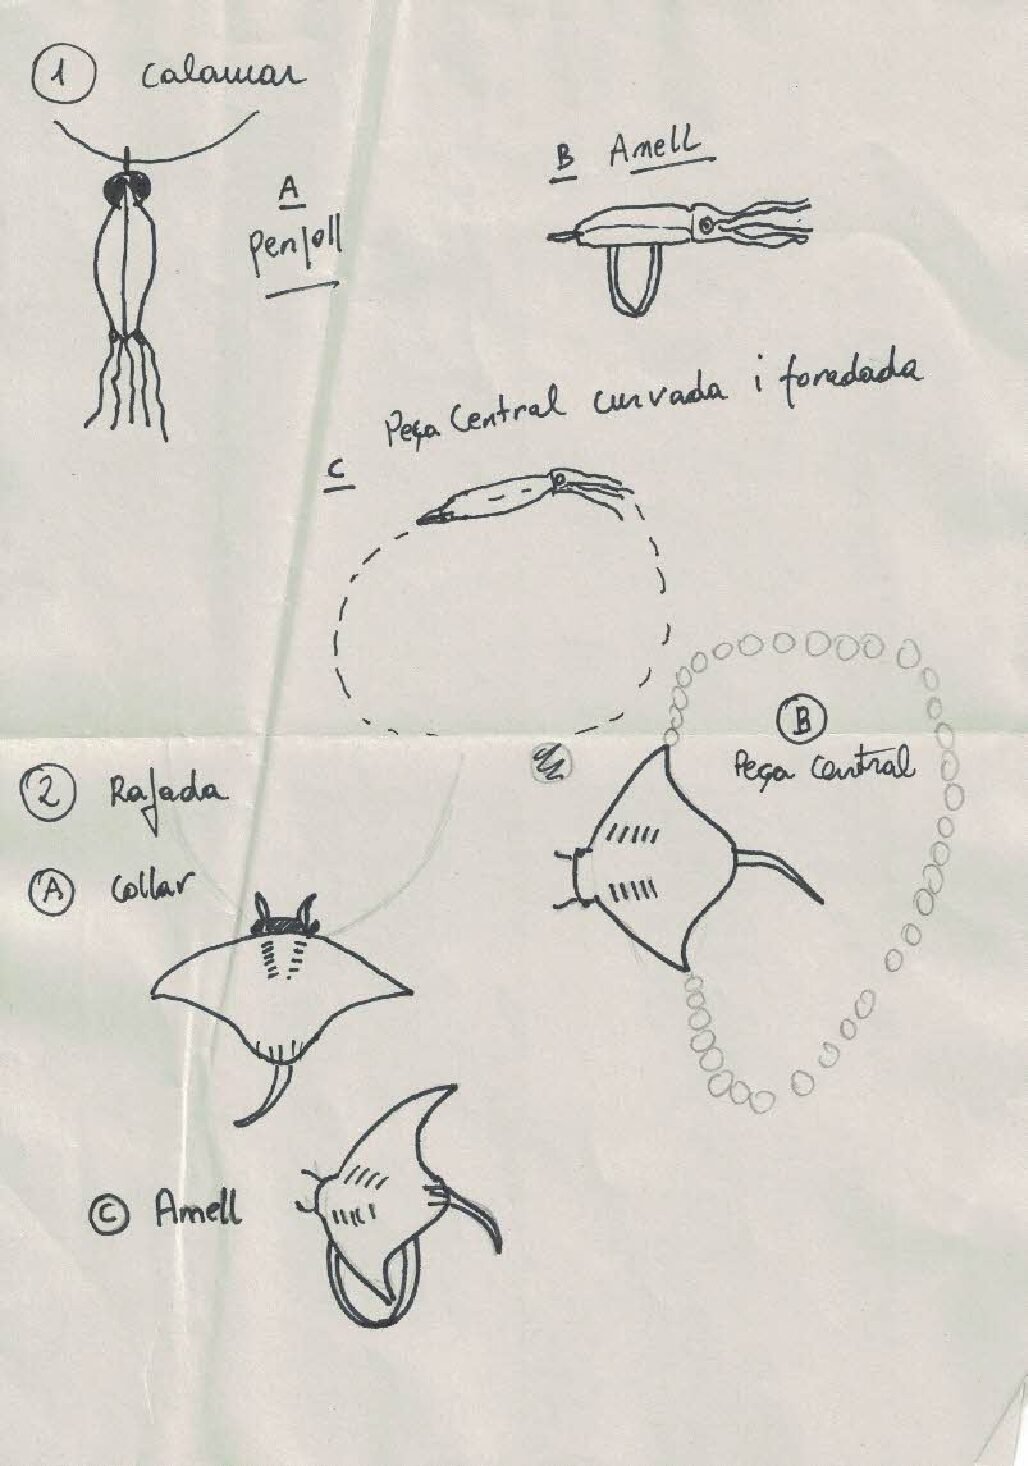 1 calamar
A
penjoll
B Anell
Peça Central curvada i foradada
C
B
Peça Central
2 Rajada
A Collar
C Anell